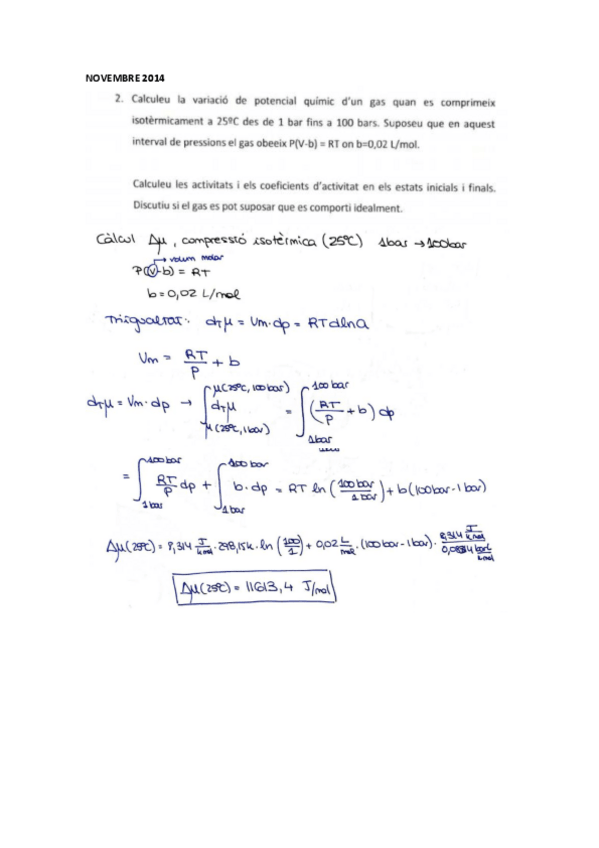 NOVEMBRE 2014
2. Calculeu la variació de potencial químic d'un gas quan es comprimeix
isotèrmicament a 25ºC des de 1 bar fins a 100 bars. Suposeu que en aquest
interval de pressions el gas obeeix P(V-b) = RT on b=0,02 L/mol.
Calculeu les activitats i els coeficients d'activitat en els estats inicials i finals.
Discutiu si el gas es pot supos­ar que es comporti idealment.
Càlcul Δμ, compressió isotèrmica (25ºC) 1bar → 100bar
→ volum molar
P(V-b) = RT
b = 0,02 L/mol
Triigualtat: dTμ = Vm·dp = RTdlna
Vm = RT/P + b
dTμ = Vm·dp → ∫ μ(25ºC, 1bar) μ(25ºC, 100bar) dTμ = ∫ 1bar 100bar (RT/P + b) dp
= ∫ 1bar 100bar RT/P dp + ∫ 1bar 100bar b·dp = RT ln (100bar/1bar) + b(100bar-1bar)
Δμ(25ºC) = 8,314 J/Kmol · 298,15K · ln (100/1) + 0,02 L/mol · (100bar-1bar) ·
Δμ(25ºC) = 11613,4 J/mol